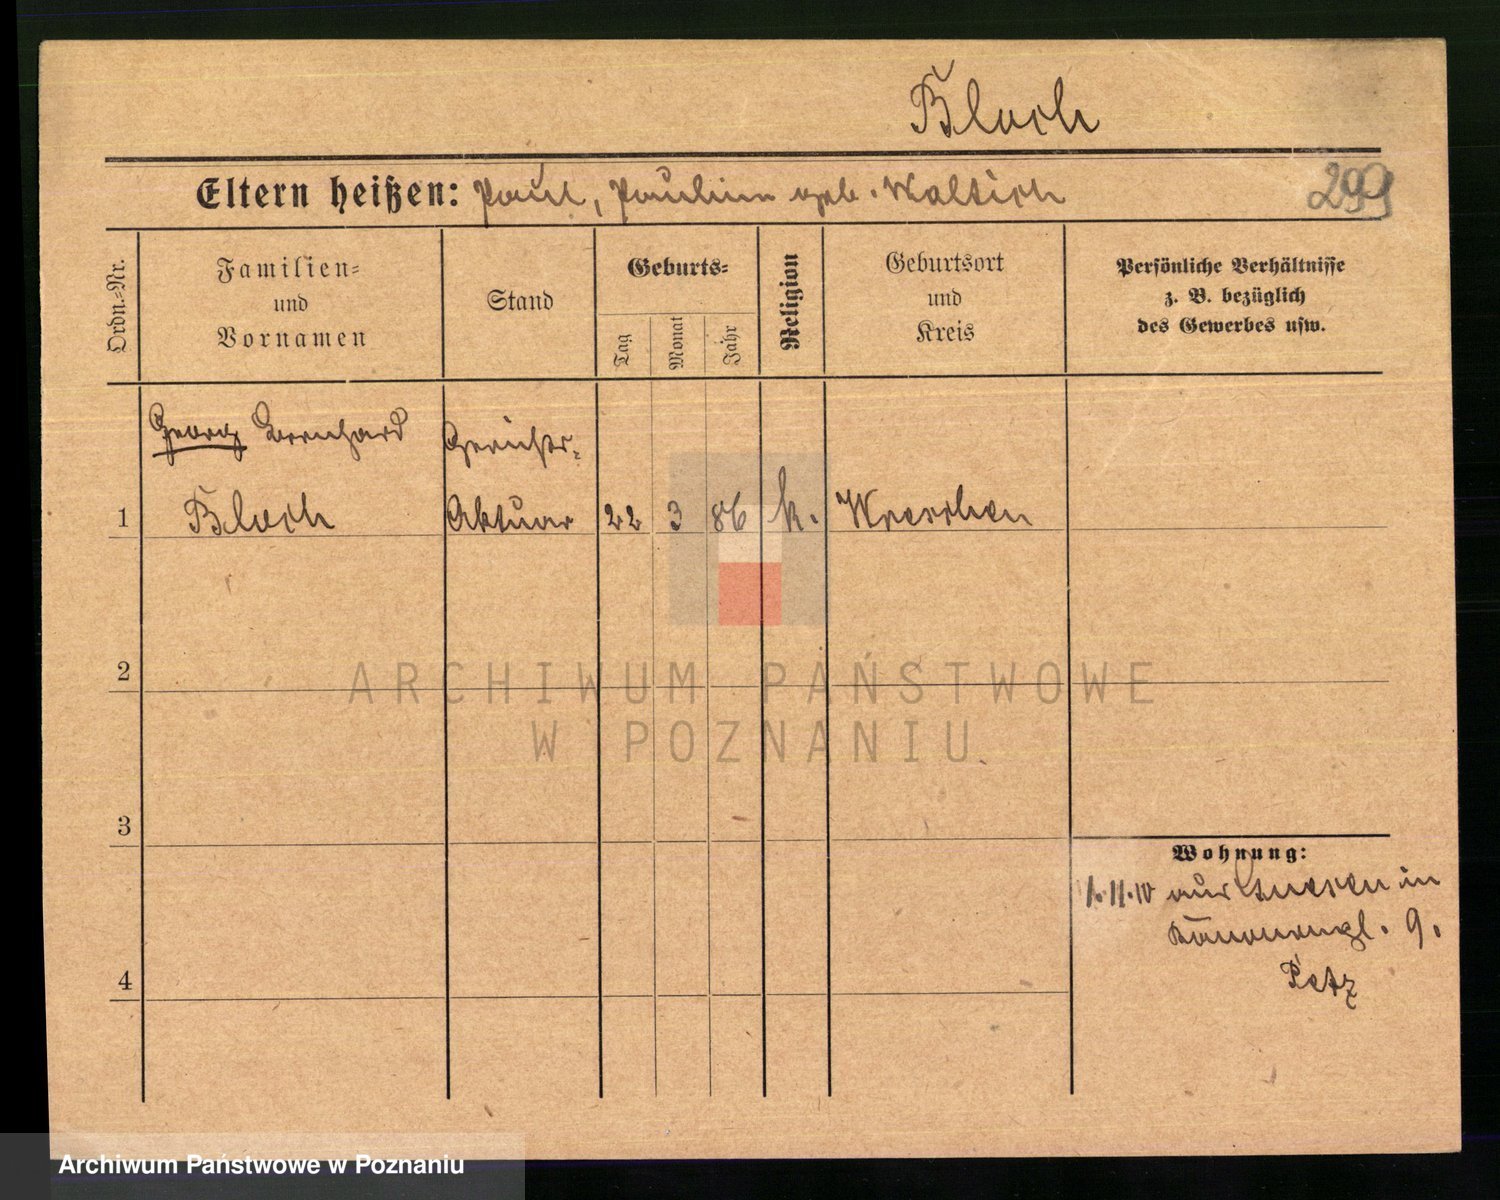 Bloch
Eltern heißen: Paul, Pauline geb. Waltsich
299
Ordn.=Nr.
Familien=
und
Vornamen
Stand
Geburts=
Tag
Monat
Jahr
Religion
Geburtsort
und
Kreis
Persönliche Verhältnisse
z. B. bezüglich
des Gewerbes usw.
Georg Bernhard Gerichts-
1 Bloch Aktuar 22 3 86 k. Wreschen
2
ARCHIWUM PAŃSTWOWE
W POZNANIU
3
Wohnung:
1.11.10 aus Gnesen in
9.
4
Petz
Archiwum Państwowe w Poznaniu